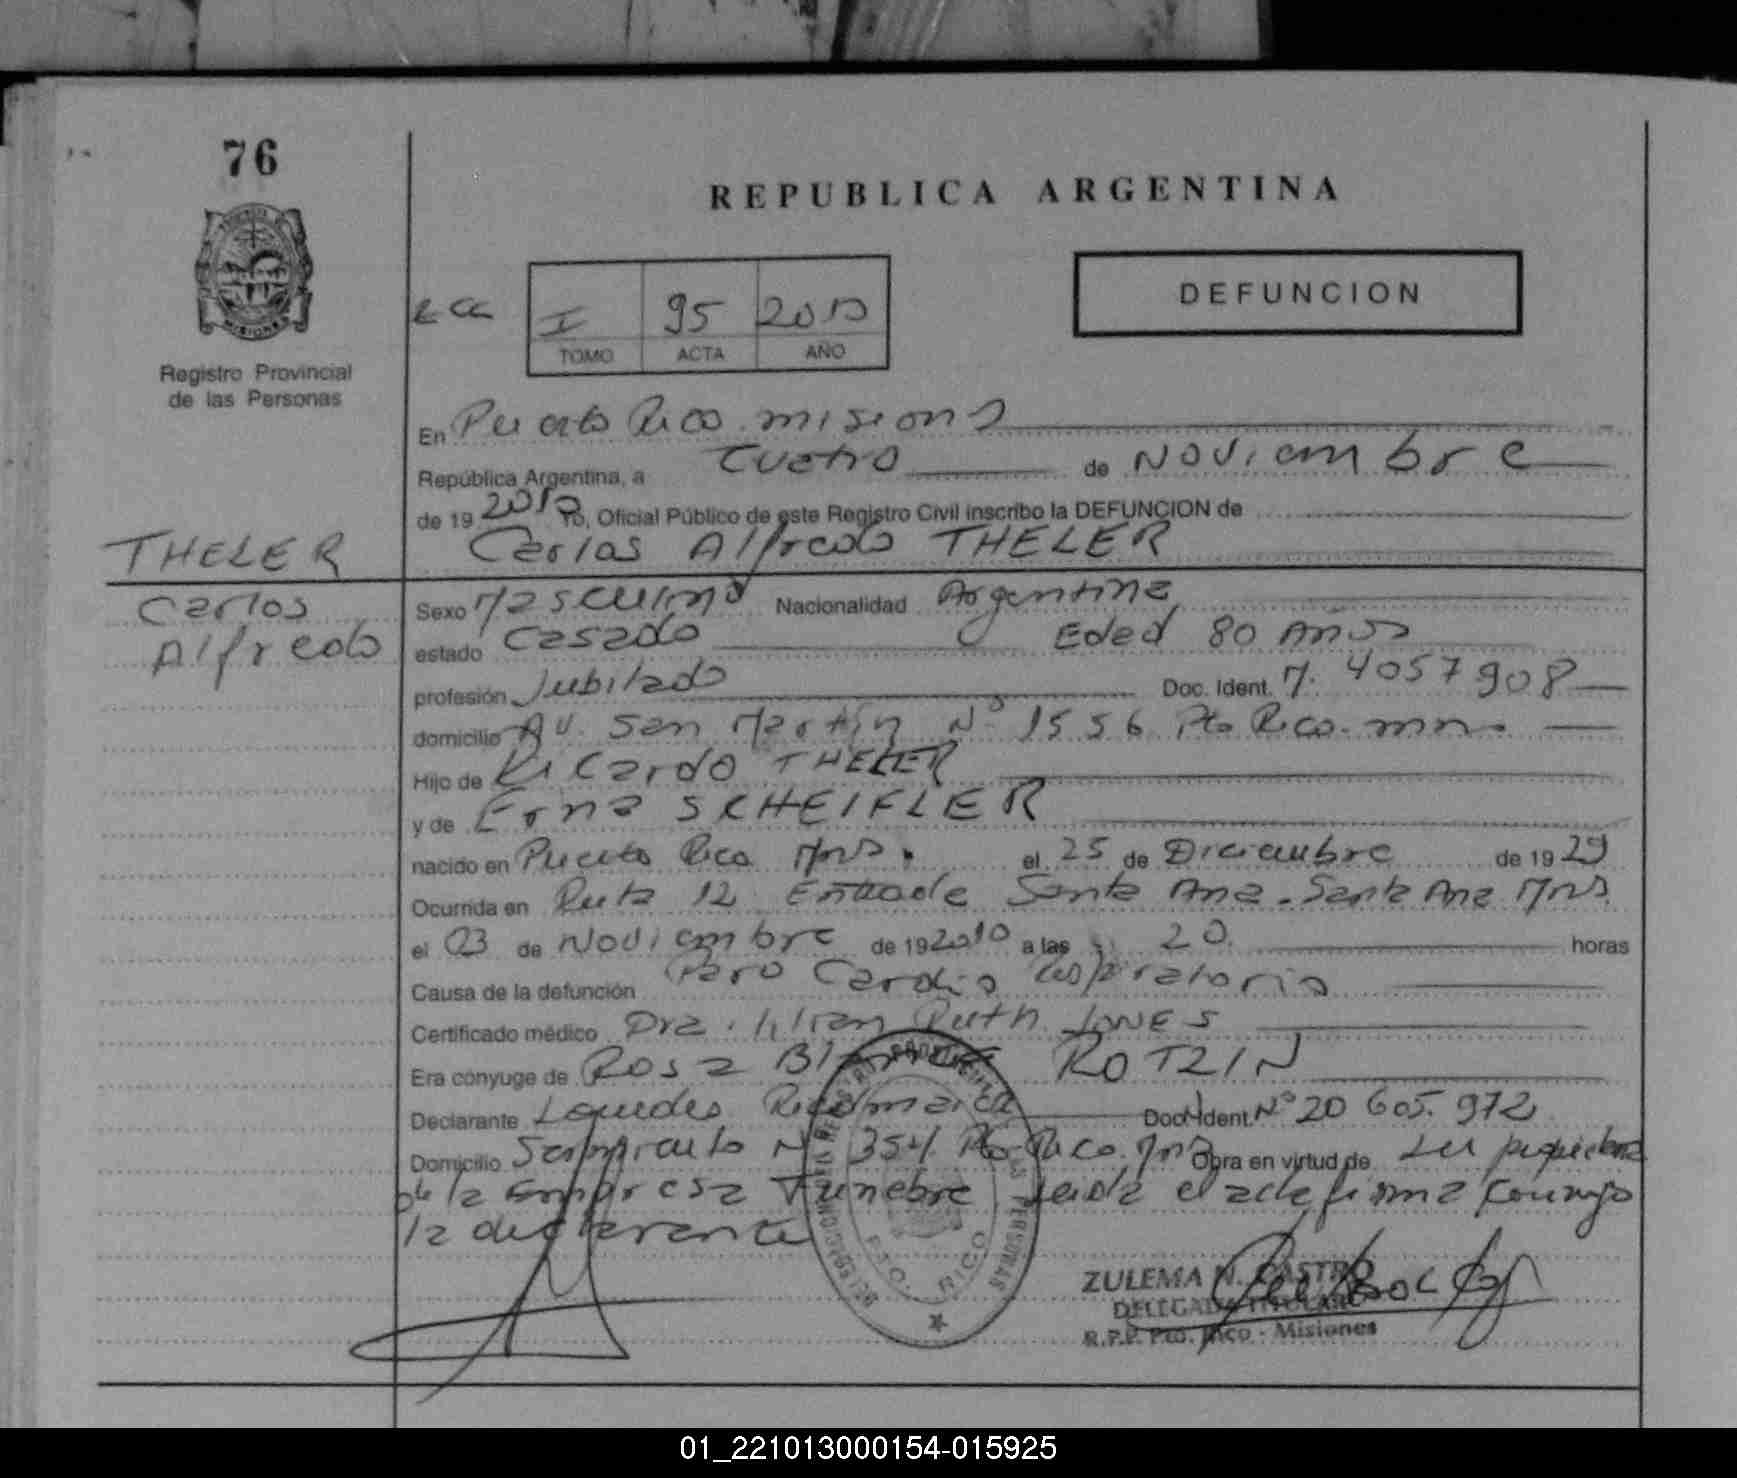 76
REPUBLICA ARGENTINA
DEFUNCION
I 95 2010
TOMO ACTA AÑO
Registro Provincial
de las Personas
En Puerto Rico misiones
República Argentina, a Cuatro de Noviembre
de 19 2010 Yo, Oficial Público de este Registro Civil inscribo la DEFUNCION de
Carlos Alfredo THELER
THELER
Carlos
Alfredo
Sexo Masculino Nacionalidad Argentina
estado Casado Edad 80 Años
profesión Jubilado Doc. Ident. M. 4057908
domicilio Av. San Martín Nº 1556 Pto Rico. mns.
Hijo de Ricardo THELER
y de Erna SCHEIFLER
nacido en Puerto Rico Mns. el 25 de Diciembre de 19 29
Ocurrida en Ruta 12 Entrada Santa Ana. Santa Ana Mns
el 03 de Noviembre de 19 2010 a las 20 horas
Causa de la defunción Paro Cardio respiratorio
Certificado médico Dra. Lilian Ruth JONES
Era cónyuge de Rosa ROTZIN
Declarante Lourdes Doc. Ident. Nº 20 605.972
Domicilio Sarmiento Nº 354 Pto Rico. Mns Obra en virtud de
de la Empresa Funebre Leida el acta firma conmigo
la declarante
PTO. RICO
ZULEMA N. CASTRO
DELEGADA TITULAR
R.P.P. Pto. Rico - Misiones
01_221013000154-015925